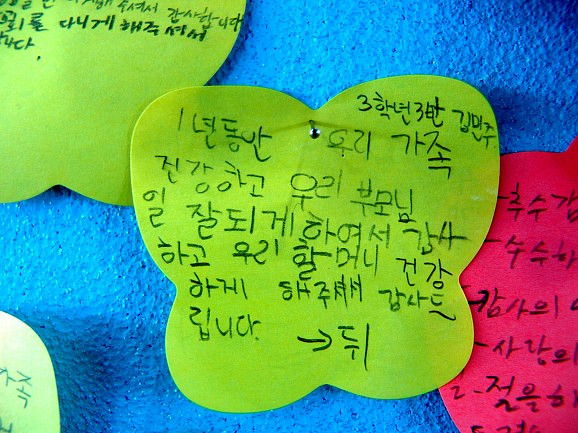 주셔서 감사합니다
를 다니게 해주셔서
니다
3학년3반 김민주
1년동안 우리 가족
진강하고 우리 부모님
일 잘되게 하여서 감사
하고 우리 할머니 건강
하게 해주셔서 감사드
립니다.
→ 뒤
-추수감
-수수하
-감사의
-사랑의
-절을하
가족